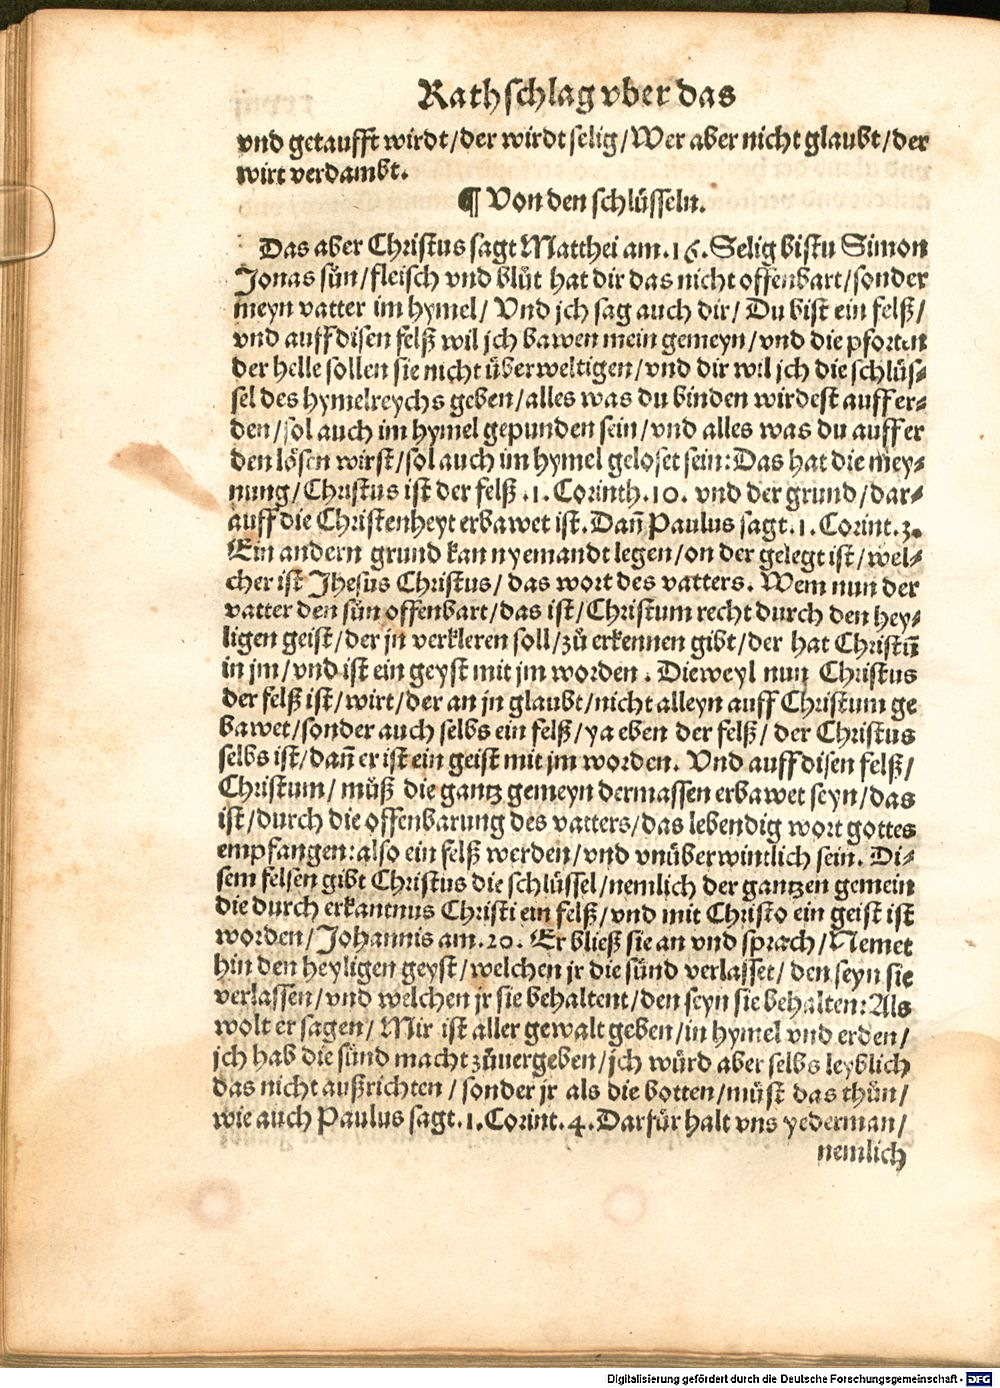 Rathschlag vber das
vnd getaufft wirdt/der wirdt selig/Wer aber nicht glaubt/der
wirt verdambt.
¶ Von den schlüsseln.
Das aber Christus sagt Matthei am.16.Selig bistu Simon
Jonas sůn/fleisch vnd blůt hat dir das nicht offenbart/sonder
meyn vatter im hymel/ Vnd jch sag auch dir/ Du bist ein felß/
vnd auff disen felß wil jch bawen mein gemeyn/vnd die pforten
der helle sollen sie nicht überweltigen/vnd dir wil jch die schlüs⸗
sel des hymelreychs geben/alles was du binden wirdest auff er⸗
den/sol auch im hymel gepunden sein/vnd alles was du auff er
den lösen wirst/sol auch im hymel geloset sein:Das hat die mey⸗
nung/Christus ist der felß .1. Corinth.10. vnd der grund/dar⸗
auff die Christenheyt erbawet ist. Dañ Paulus sagt.1.Corint.3.
Ein andern grund kan nyemandt legen/on der gelegt ist/wel⸗
cher ist Jhesus Christus/ das wort des vatters. Wem nun der
vatter den sůn offenbart/das ist/Christum recht durch den hey⸗
ligen geist/der jn verkleren soll/zů erkennen gibt/der hat Christū
in jm/vnd ist ein geyst mit jm worden. Dieweyl nun Christus
der felß ist/wirt/der an jn glaubt/nicht alleyn auff Christum ge
bawet/sonder auch selbs ein felß/ya eben der felß/ der Christus
selbs ist/dañ er ist ein geist mit jm worden. Vnd auff disen felß/
Christum/ můß die gantz gemeyn dermassen erbawet seyn/das
ist/durch die offenbarung des vatters/das lebendig wort gottes
empfangen:also ein felß werden/vnd vnüberwintlich sein. Di⸗
sem felsen gibt Christus die schlüssel/nemlich der gantzen gemein
die durch erkantnus Christi ein felß/vnd mit Christo ein geist ist
worden/Johannis am.20. Er bließ sie an vnd sprach/Nemet
hin den heyligen geyst/welchen jr die sünd verlasset/den seyn sie
verlassen/vnd welchen jr sie behaltent/den seyn sie behalten:Als
wolt er sagen/ Mir ist aller gewalt geben/in hymel vnd erden/
jch hab die sünd macht zůuergeben/jch würd aber selbs leyblich
das nicht außrichten/sonder jr als die botten/müst das thůn/
wie auch Paulus sagt.1.Corint.4.Darfür halt vns yederman/
nemlich
Digitalisierung gefördert durch die Deutsche Forschungsgemeinschaft - DFG